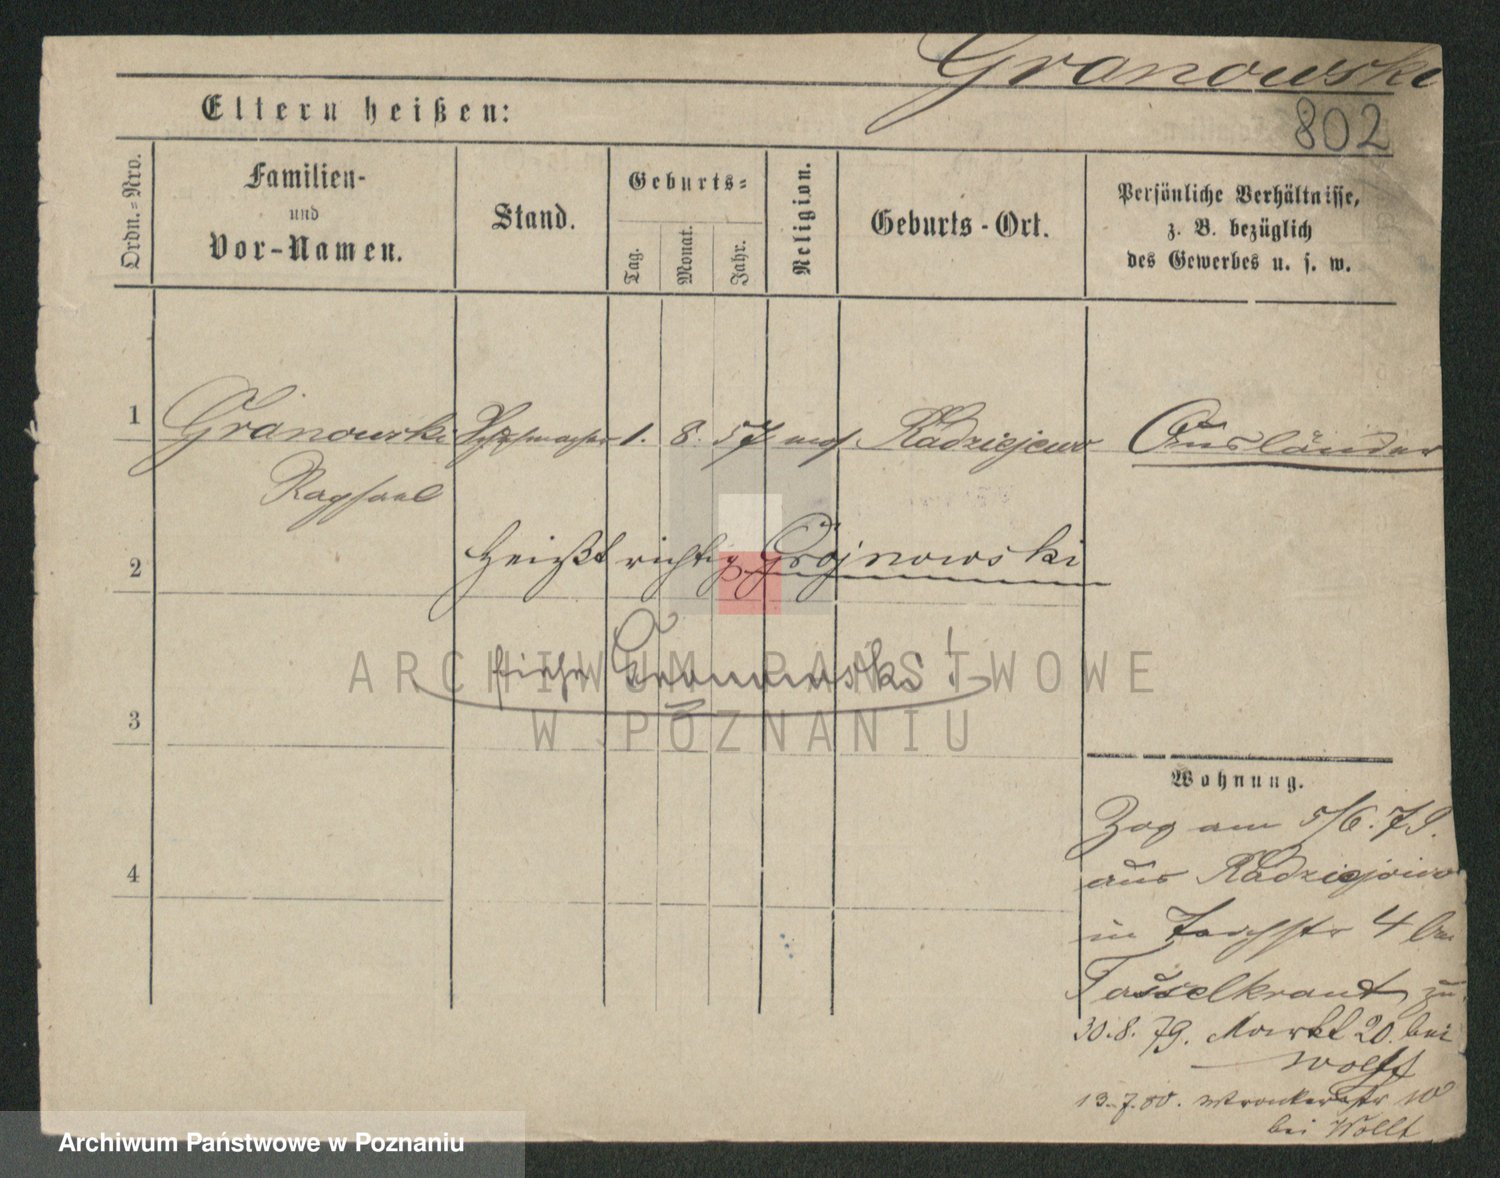 Granowski
802
Eltern heißen:
Ordn.-Nro.
Familien-
und
Vor-Namen.
Stand.
Geburts-
Tag.
Monat.
Jahr.
Religion.
Geburts-Ort.
Persönliche Verhältnisse,
z. B. bezüglich
des Gewerbes u. s. w.
1 Granowski 1. 8. 57 mos. Radziejewo Ausländer
Raphael
2 heißt richtig Grojnowski
siehe Granowski!
ARCHIWUM PAŃSTWOWE
W POZNANIU
3
Wohnung.
Zog am 5/6. 79.
4 aus Radziejewo
in 4
Tasselkraut zu
30.8.79. Markt 20. bei
Wolff
13.7.80. Wronkerstr 10
bei Wolff
Archiwum Państwowe w Poznaniu